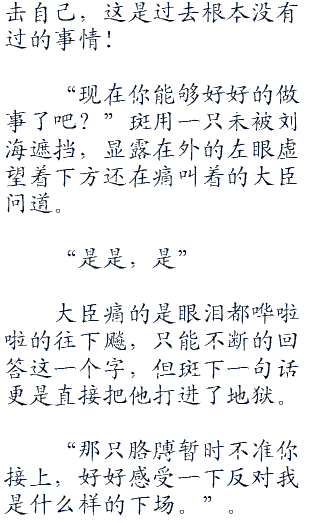 击自己，这是过去根本没有
过的事情！
“现在你能够好好的做
事了吧？”斑用一只未被刘
海遮挡，显露在外的左眼虚
望着下方还在痛叫着的大臣
问道。
“是是，是”
大臣痛的是眼泪都哗啦
啦的往下飚，只能不断的回
答这一个字，但斑下一句话
更是直接把他打进了地狱。
“那只胳膊暂时不准你
接上，好好感受一下反对我
是什么样的下场。”。